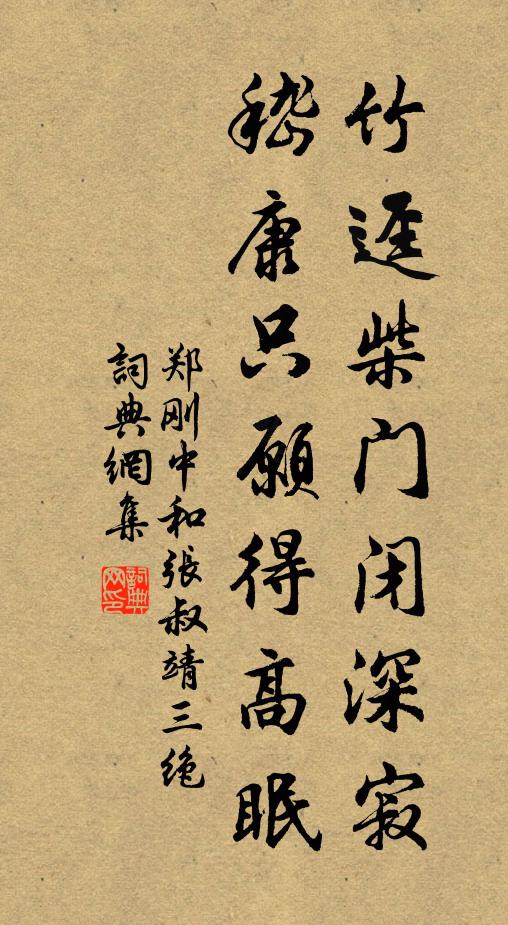 竹迳柴门闭深寂
嵇康只願得高眠
郑刚中和張叔靖三绝
詞典網集
詞典網印